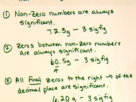 ① Non-Zero numbers are always
significant.
72.3g – 3 sigfig
② Zeros between non-zero numbers
are always significant.
60.5g – 3 sigfig
③ All Final zeros to the right → of the
decimal place are significant.
6.20g – 3 sigfig